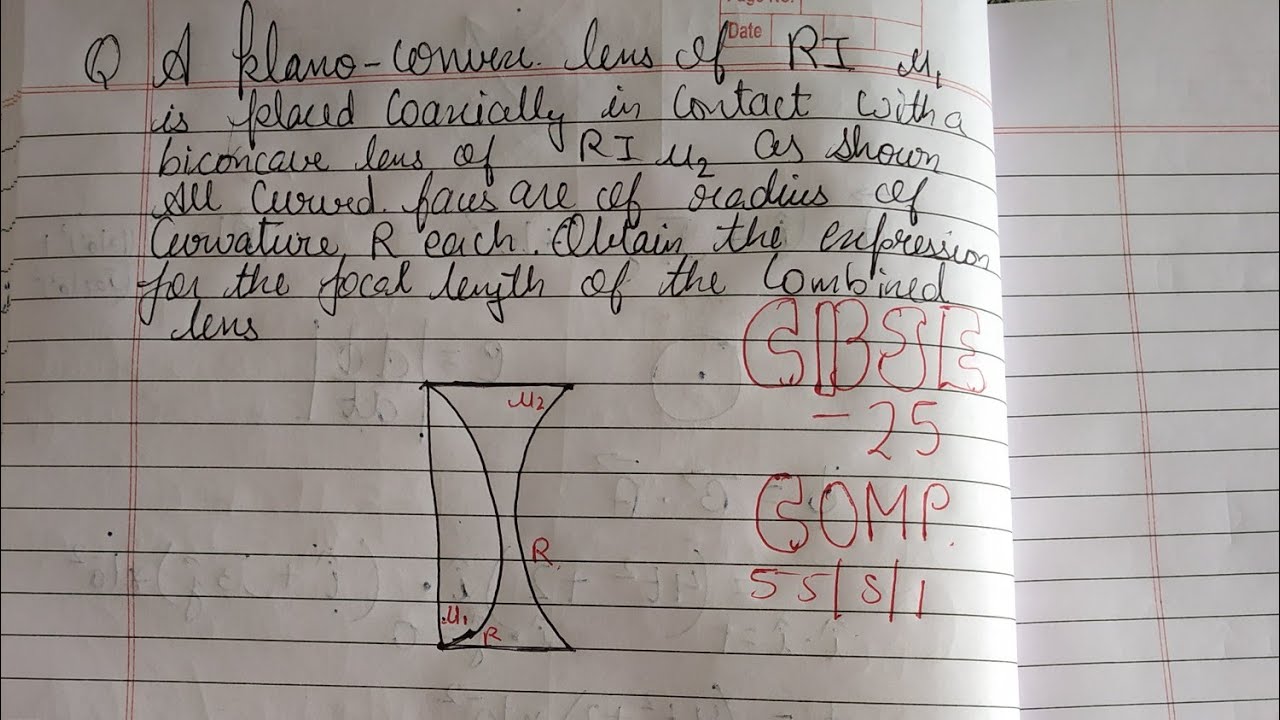 Date
Q A plano-convex lens of RI μ₁
is placed coaxially in contact with a
biconcave lens of RI μ₂ as shown
All curved faces are of radius of
Curvature R each. Obtain the expression
for the focal length of the combined
lens
CBSE
-25
COMP.
55/S/1
μ₂
R.
μ₁
R